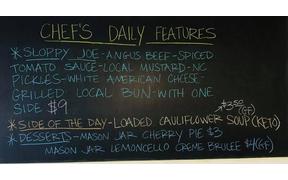 CHEF'S DAILY FEATURES
*SLOPPY JOE-ANGUS BEEF-SPICED
TOMATO SAUCE-LOCAL MUSTARD-NC
PICKLES-WHITE AMERICAN CHEESE-
GRILLED LOCAL BUN-WITH ONE
SIDE $9
$3.50 (GF)
*SIDE OF THE DAY-LOADED CAULIFLOWER SOUP (KETO)
*DESSERTS-MASON JAR CHERRY PIE $3
MASON JAR LEMONCELLO CREME BRULEE $4 (GF)